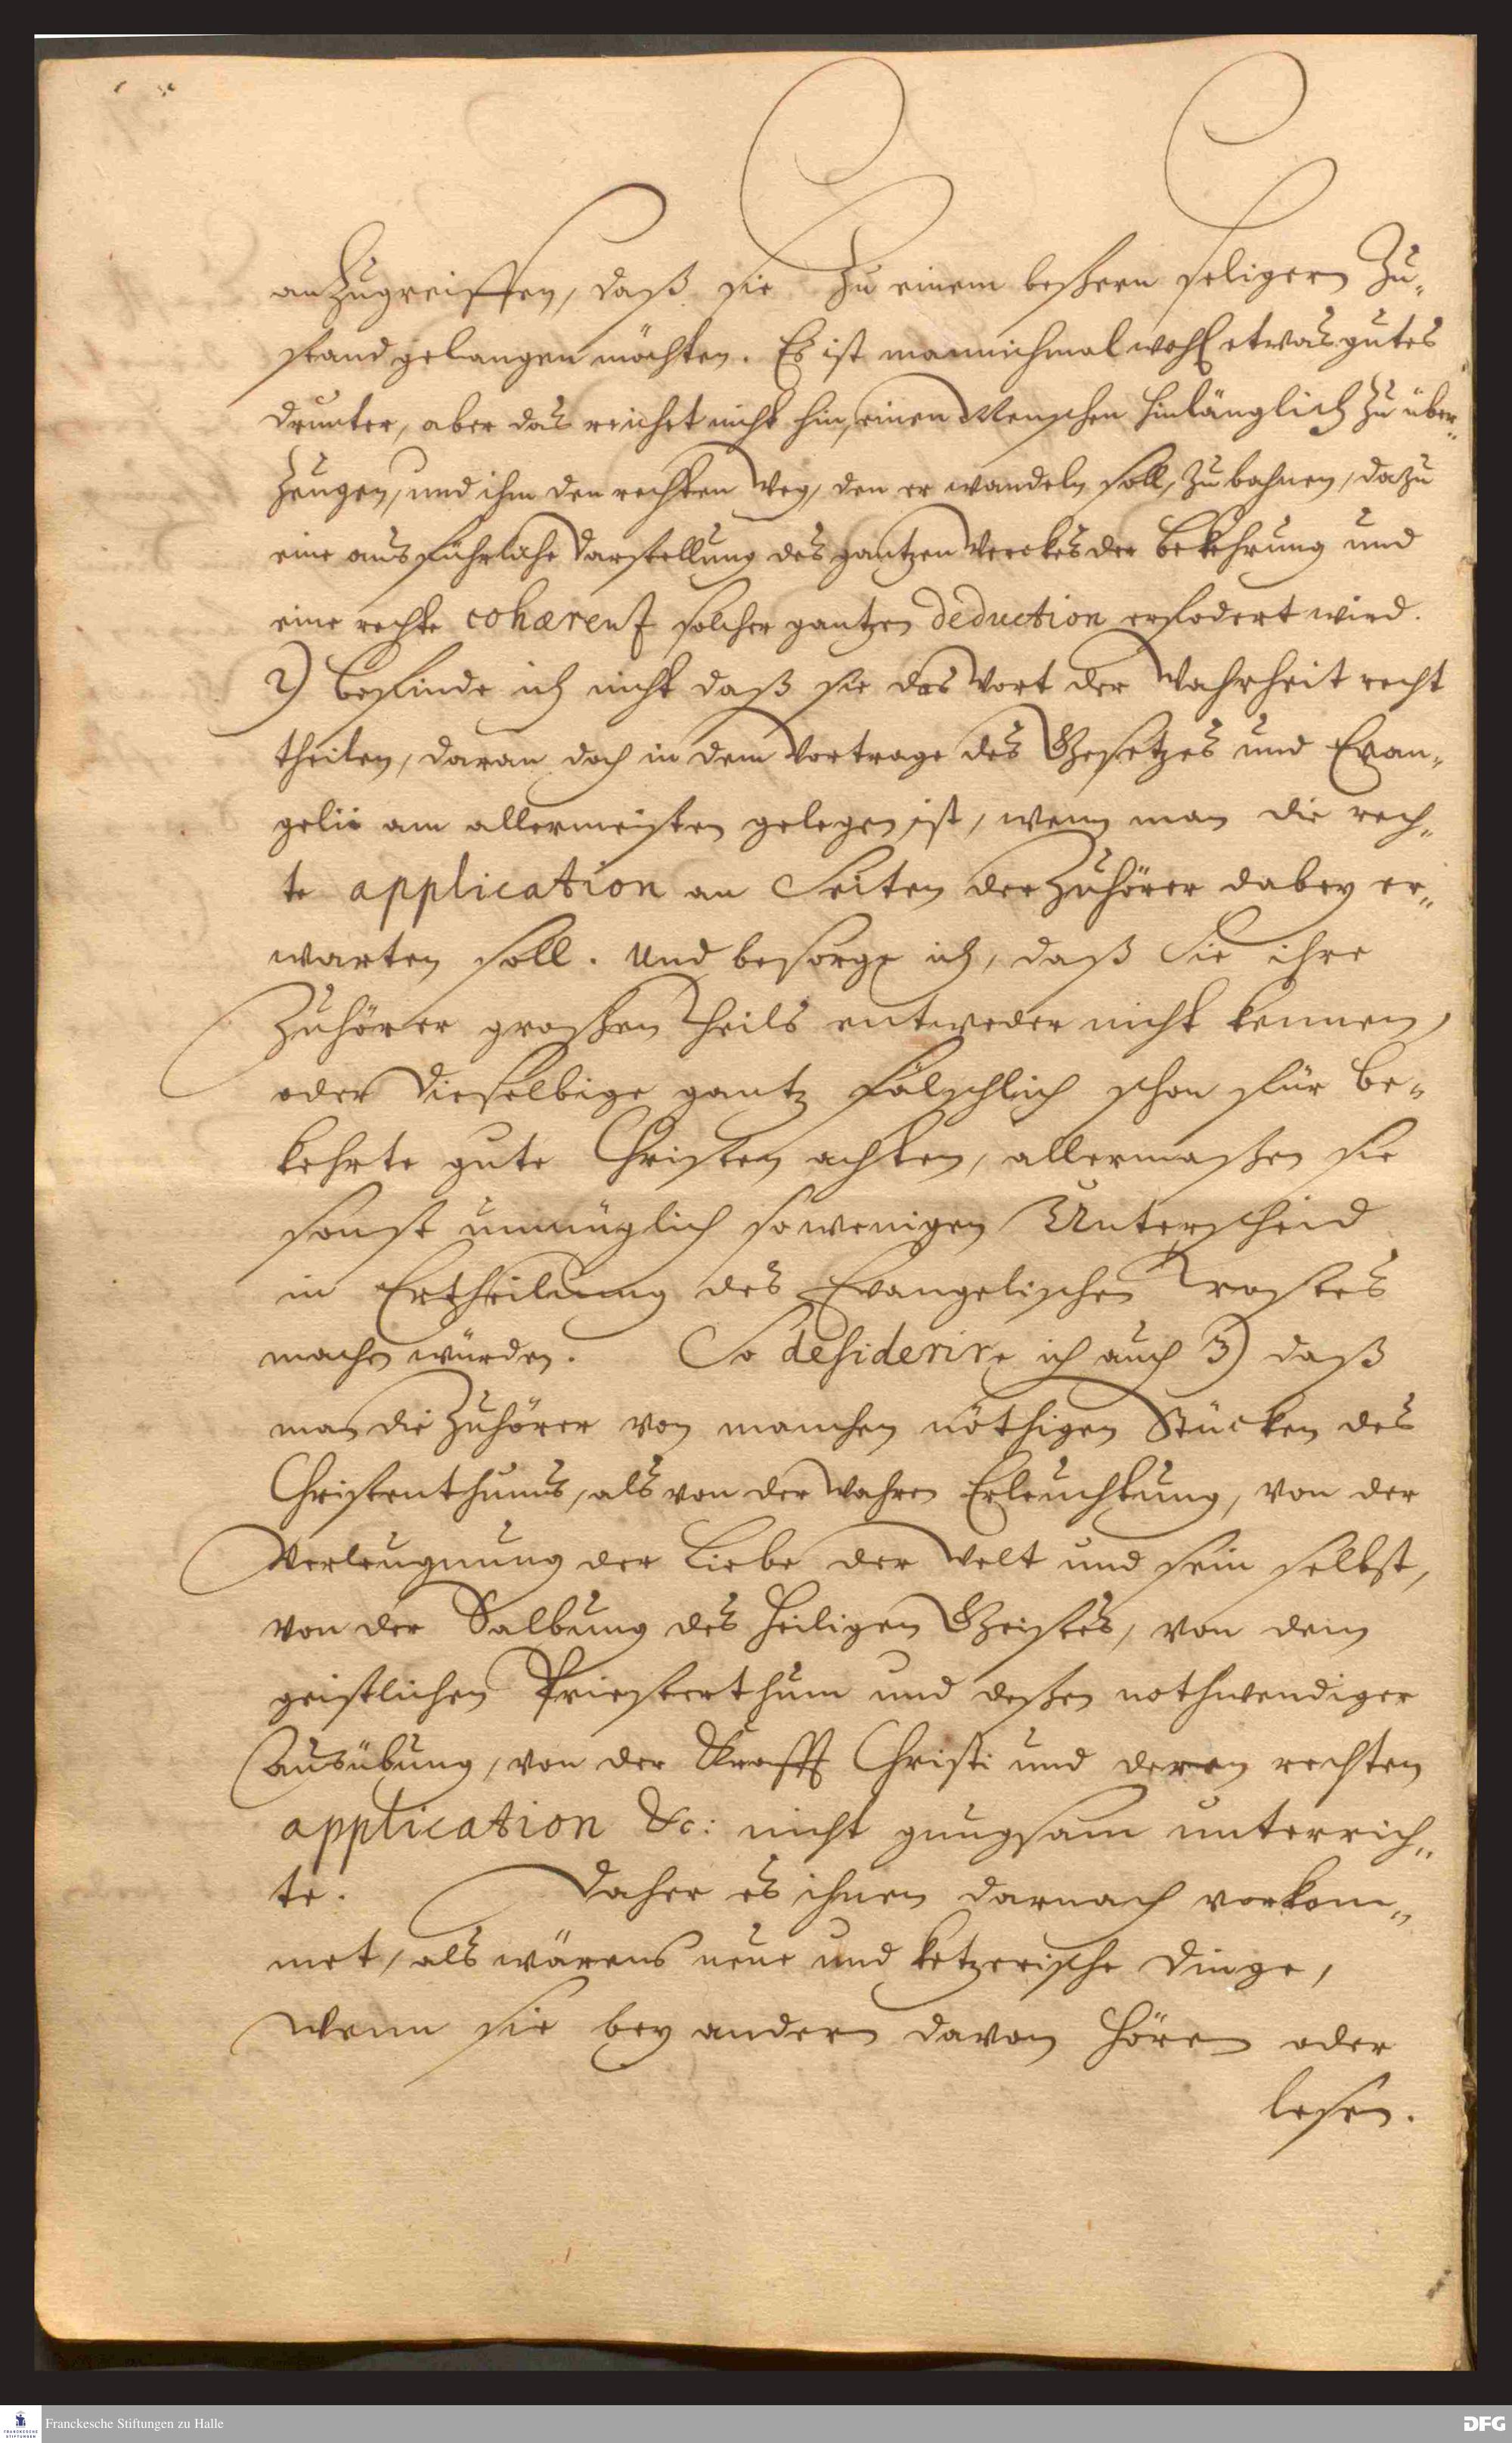 anzugreiffen, daß sie zu einem beßern seligern Zu-
stand gelangen möchten. Es ist mannichmal wohl etwas gutes
drunter, aber das reichet nicht hin, einen Menschen hinlänglich zu über-
zeugen, und ihm den rechten Weg, den er wandeln soll, zu bahnen, dazu
eine ausführliche Darstellung des gantzen Werckes der Bekehrung und
eine rechte cohærenz solcher gantzen deduction erfodert wird.
2) Befinde ich nicht daß sie das Wort der Wahrheit recht
theilen, daran doch in dem Vortrage des Gesetzes und Evan-
gelii am allermeisten gelegen ist, wenn man die rech-
te application an Seiten der Zuhörer dabey er-
warten soll. Und besorge ich, daß Sie ihre
Zuhörer großen Theils entweder nicht kennen,
oder dieselbige gantz fälschlich schon für be-
kehrte gute Christen achten, allermaßen sie
sonst unmüglich so wenigen Unterscheid
in Ertheilung des Evangelischen Trostes
machen würden. So desiderire ich auch 3) daß
man die Zuhörer von manchen nöthigen Stücken des
Christenthums, als von der wahren Erleuchtung, von der
Verleugnung der Liebe der Welt und sein selbst,
von der Salbung des heiligen Geistes, von dem
geistlichen Priesterthum und deßen nothwendiger
Ausübung, von der Krafft Christi und deren rechten
application &c: nicht gnugsam unterrich-
te. Daher es ihnen darnach vorkom-
met, als wärens neue und ketzerische Dinge,
wenn sie bey andern davon hören oder
lesen.
Franckesche Stiftungen zu Halle
DFG